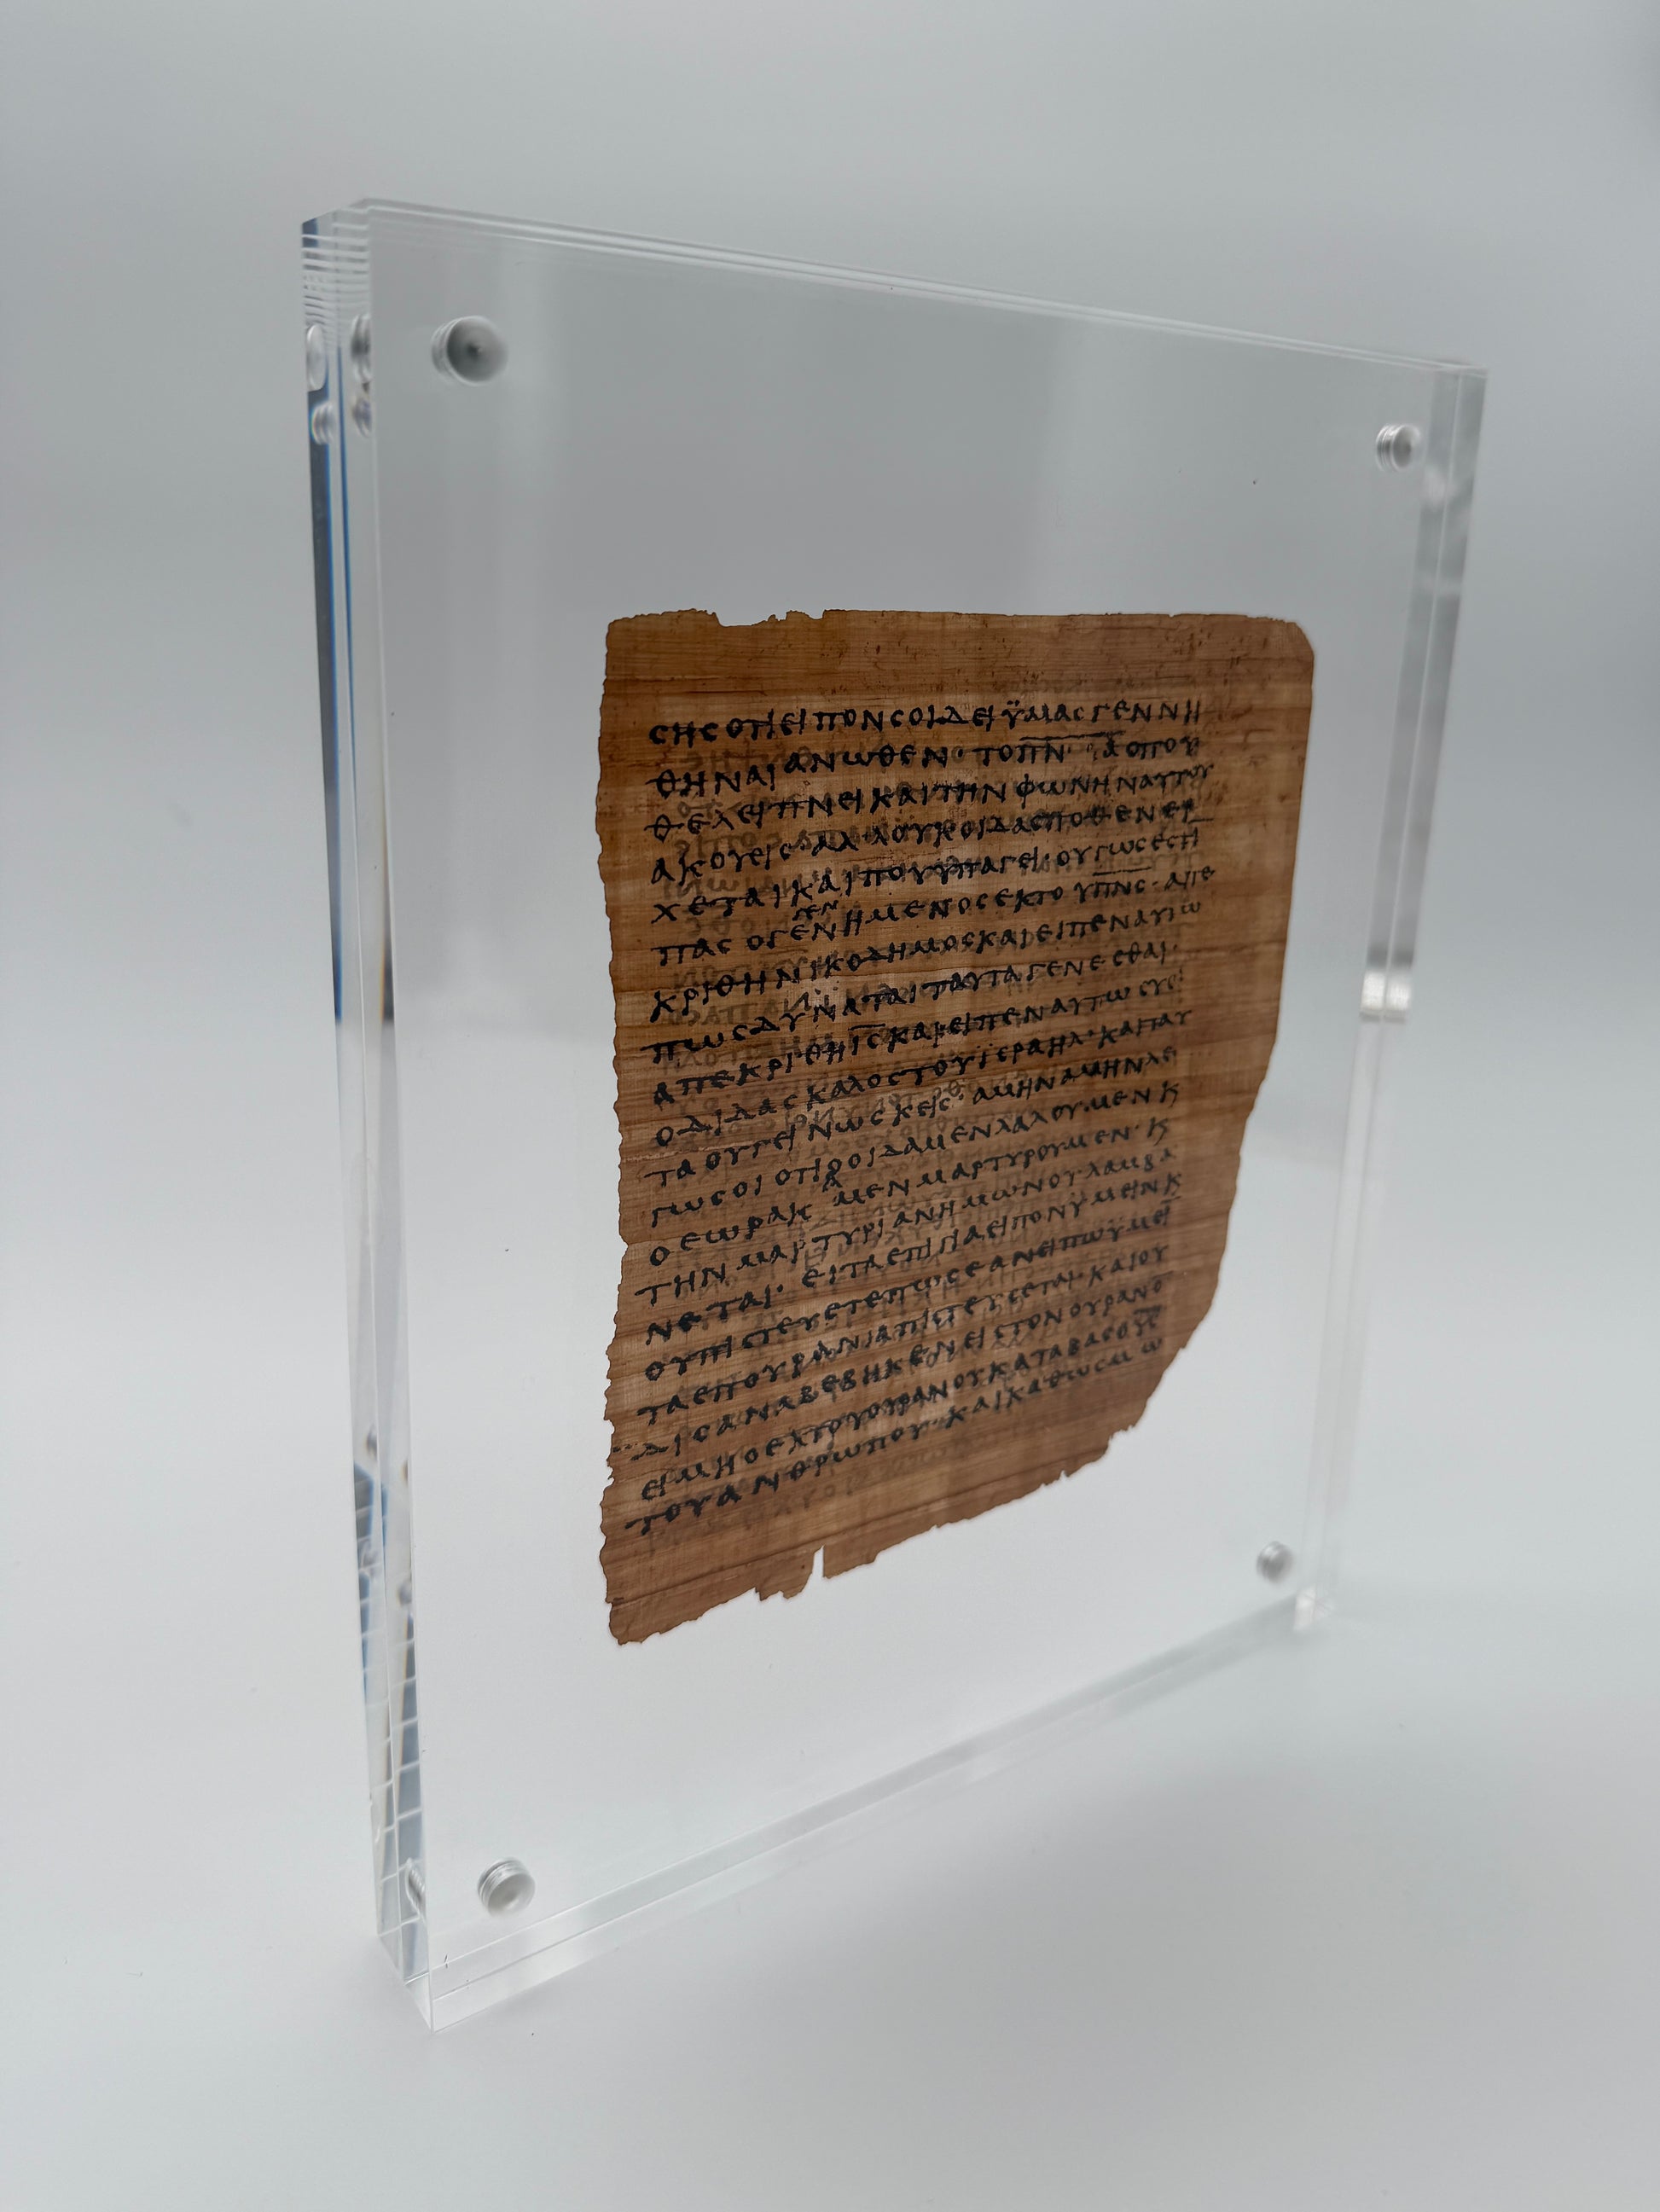 ϲηϲ οτι ειπον ϲοι δει ϋμαϲ γεννη
θηναι ανωθεν· το π̅ν̅α̅ οπου
θελει πνει και την φωνην αυτου
ακουειϲ· αλλ ουκ οιδαϲ ποθεν ερ
χεται και που ϋπαγει· ουτωϲ εϲτι
παϲ ο γεγεννημενοϲ εκ του π̅ν̅ϲ̅· απε
κριθη νικοδημοϲ και ειπεν αυτω
πωϲ δυναται ταυτα γενεϲθαι·
απεκριθη ι̅ϲ̅ και ειπεν αυτω ϲυ ει
ο διδαϲκαλοϲ του ϊϲραηλ· και ταυ
τα ου γεινωϲκειϲ· αμην αμην λε
γω ϲοι οτι ο οιδαμεν λαλουμεν κ
ο εωρακαμεν μαρτυρουμεν· κ
την μαρτυριαν ημων ου λαμβα
νεται· ει τα επιγια ειπον ϋμειν κ
ου πιϲτευετε πωϲ εαν ειπω ϋμει
τα επουρανια πιϲτευϲεται· και ου
διϲ αναβεβηκεν ειϲ τον ουρανο
ει μη ο εκ του ουρανου καταβαϲ ο υ̅ϲ̅
του ανθρωπου· και καθωϲ μω